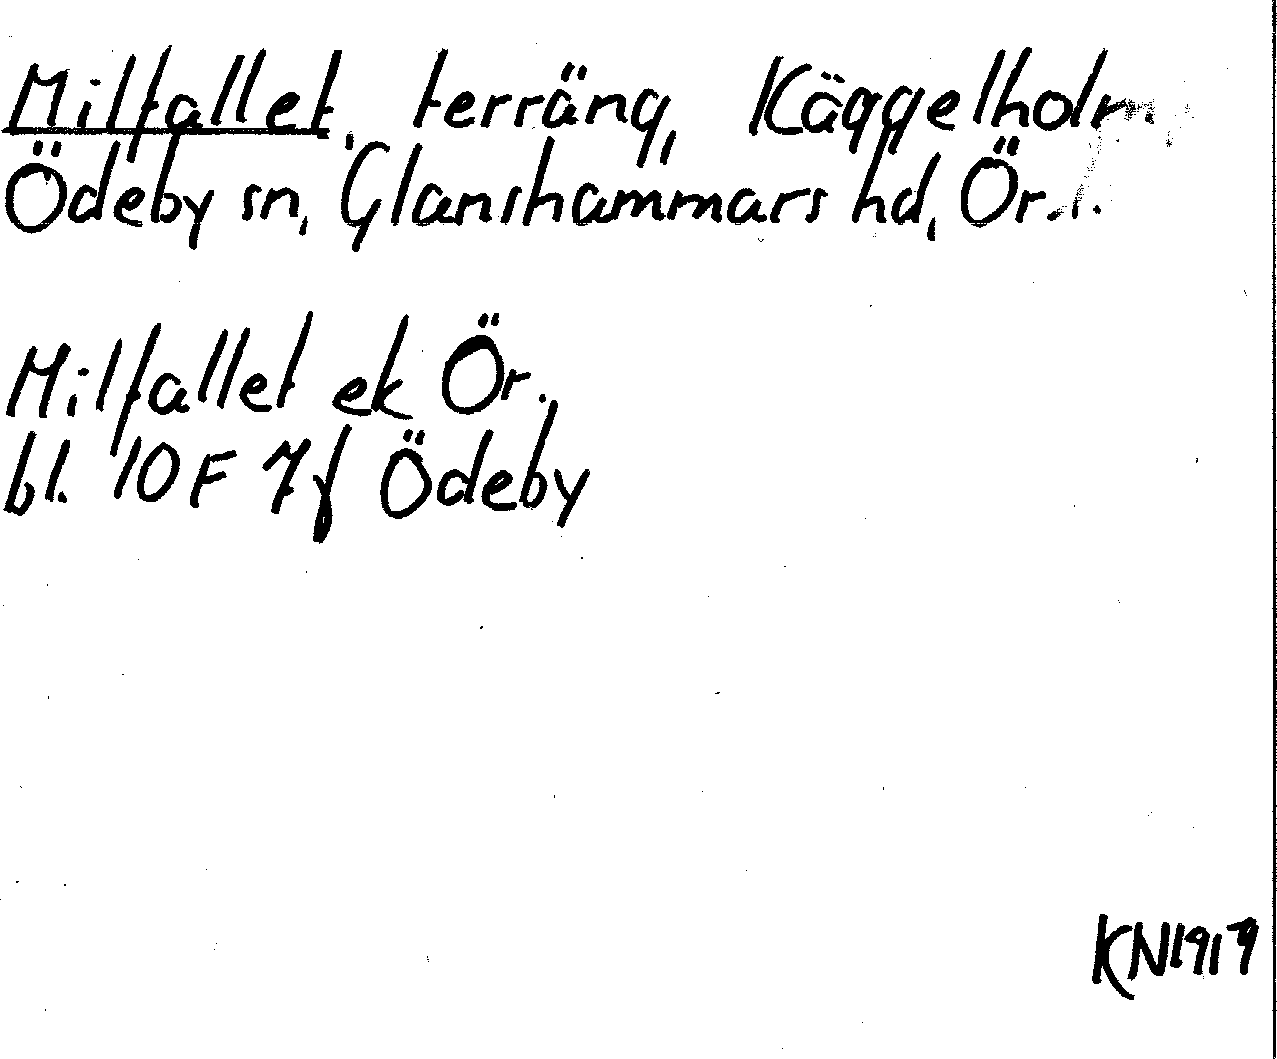 Milfallet, terräng, Käggelholm,
Ödeby sn, Glanshammars hd, Ör. l.
Milfallet ek Ör.
bl. 10 F 7 f Ödeby